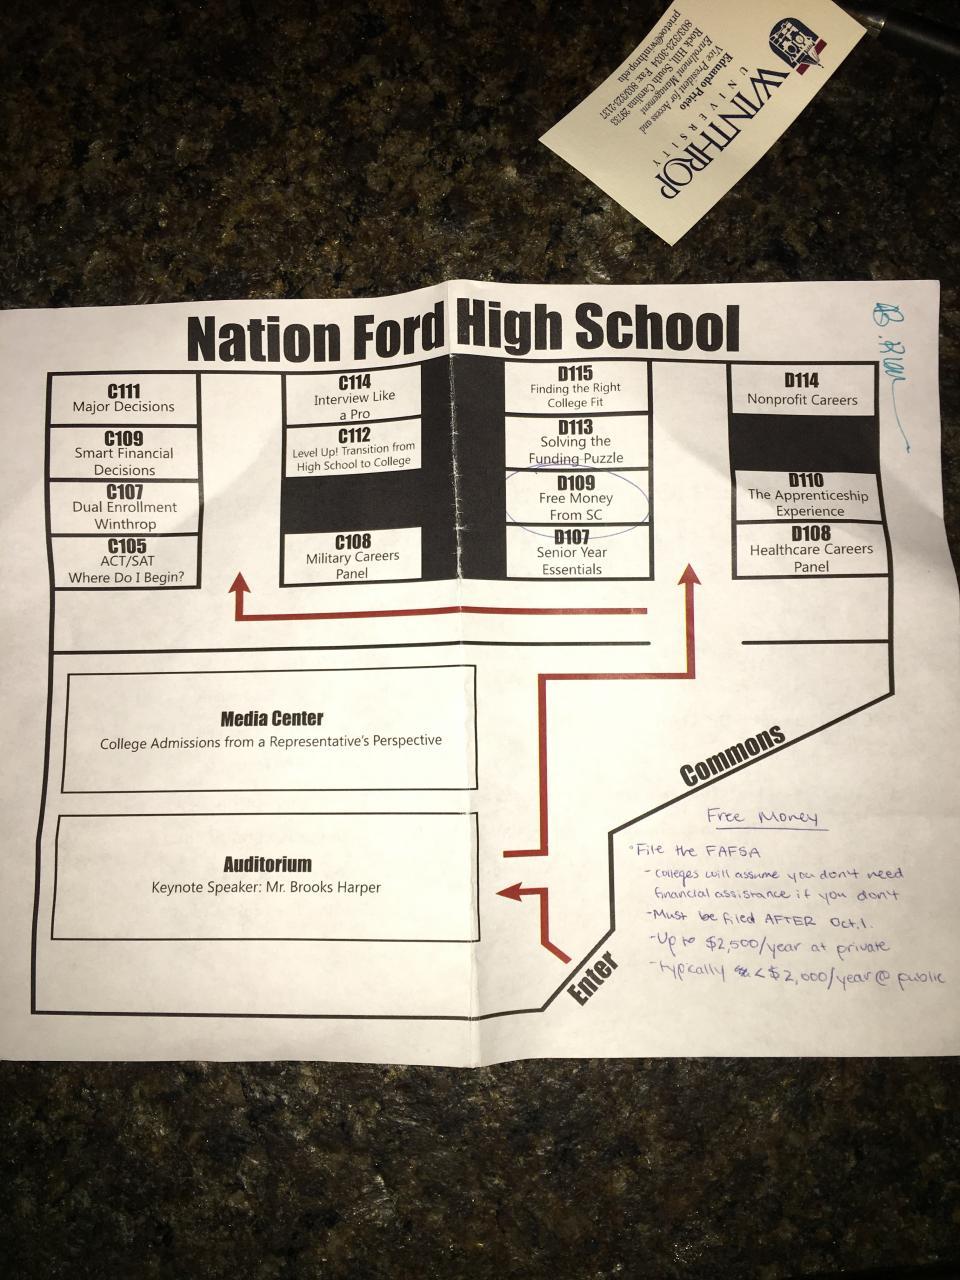 WINTHROP
UNIVERSITY
Eduardo Prieto
Vice President for Access and
Enrollment Management
Rock Hill, South Carolina 29733
803/323-3034 Fax: 803/323-2137
prietoe@winthrop.edu
Nation Ford High School
C111
Major Decisions
C109
Smart Financial
Decisions
C107
Dual Enrollment
Winthrop
C105
ACT/SAT
Where Do I Begin?
C114
Interview Like
a Pro
C112
Level Up! Transition from
High School to College
C108
Military Careers
Panel
D115
Finding the Right
College Fit
D113
Solving the
Funding Puzzle
D109
Free Money
From SC
D107
Senior Year
Essentials
D114
Nonprofit Careers
D110
The Apprenticeship
Experience
D108
Healthcare Careers
Panel
Media Center
College Admissions from a Representative's Perspective
Auditorium
Keynote Speaker: Mr. Brooks Harper
Commons
Enter
Free Money
• File the FAFSA
- colleges will assume you don't need
financial assistance if you don't
- Must be filed AFTER Oct.1.
- Up to $2,500/year at private
- typically < $2,000/year @ public